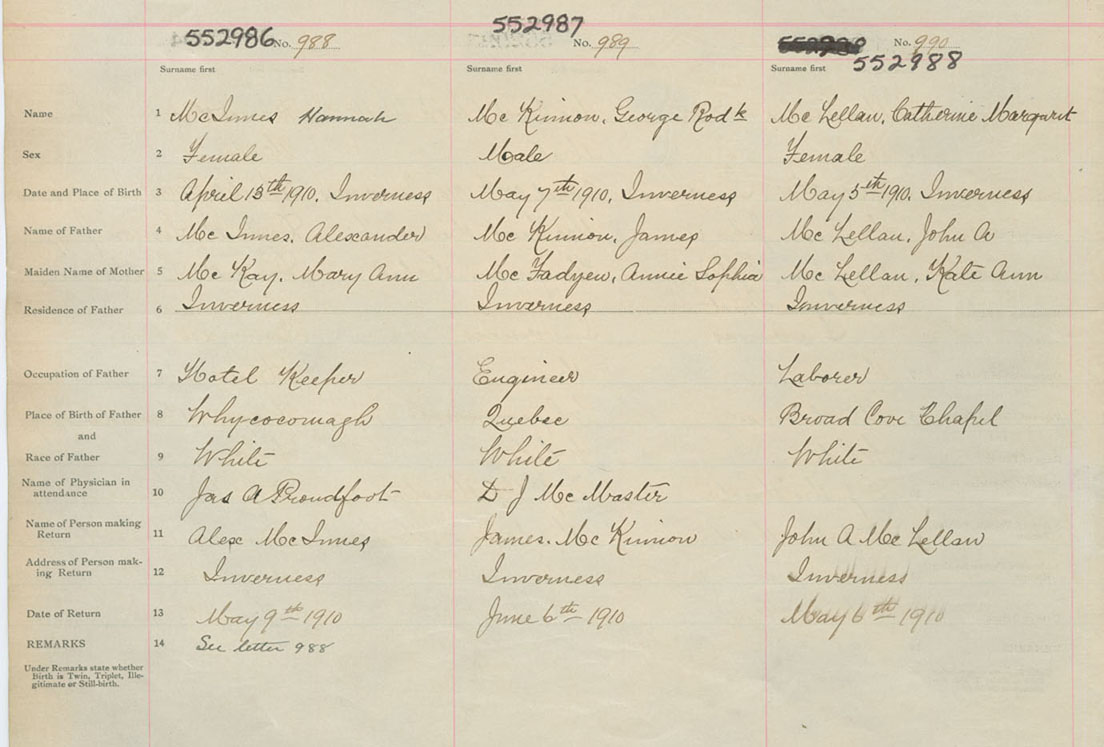 552986 No. 988 552987 No. 989 No. 990
552988
Surname first Surname first Surname first
Name 1 McInnes Hannah Mc Kinnon, George Rodk Mc Lellan, Catherine Margaret
Sex 2 Female Male Female
Date and Place of Birth 3 April 13th 1910. Inverness May 7th 1910, Inverness May 5th 1910. Inverness
Name of Father 4 Mc Innes. Alexander Mc Kinnon, James Mc Lellan, John A
Maiden Name of Mother 5 Mc Kay. Mary Ann Mc Fadyen, Annie Sophia Mc Lellan, Kate Ann
Residence of Father 6 Inverness Inverness Inverness
Occupation of Father 7 Hotel Keeper Engineer Laborer
Place of Birth of Father 8 Whycocomagh Quebec Broad Cove Chapel
and
Race of Father 9 White White White
Name of Physician in attendance 10 Jas A Proudfoot D J Mc Master
Name of Person making Return 11 Alex McInnes James. Mc Kinnon John A Mc Lellan
Address of Person mak-ing Return 12 Inverness Inverness Inverness
Date of Return 13 May 9th 1910 June 6th 1910 May 6th 1910
REMARKS 14 See letter 988
Under Remarks state whether
Birth is Twin, Triplet, Ille-
gitimate or Still-birth.